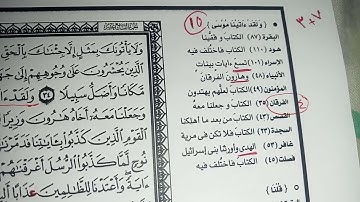 ﴿ وَلَقَدْ ءَاتَيْنَا مُوسَى ﴾
١٥
٣+٧
البقرة (٨٧) الكتابَ و قفينا
هود (١١٠) الكتابَ فاختلف فيه
الإسراء (١٠١) تسعَ ءايات بينات
الأنبياء (٤٨) وهارونَ الفرقانَ
المؤمنون (٤٩) الكتابَ لعلهم يهتدون
الفرقان (٣٥) الكتابَ وجعلنا معه
القصص (٤٣) الكتابَ من بعد ما أهلكنا
السجدة (٢٣) الكتابَ فلا تكن في مرية
غافر (٥٣) الهدى وأورثنا بني إسرائيل
فصلت (٤٥) الكتابَ فاختلف فيه
﴿ قُلْنَا ﴾
وَلَا يَأْتُونَكَ بِمَثَلٍ إِلَّا جِئْنَٰكَ بِٱلْحَقِّ
ٱلَّذِينَ يُحْشَرُونَ عَلَىٰ وُجُوهِهِمْ إِلَىٰ
مَّكَانًا وَأَضَلُّ سَبِيلًا ٣٤ وَلَقَدْ ءَا
وَجَعَلْنَا مَعَهُۥٓ أَخَاهُ هَٰرُونَ وَزِيرًا
ٱلْقَوْمِ ٱلَّذِينَ كَذَّبُوا۟ بِـَٔايَٰتِنَا فَدَمَّرْ
نُوحٍ لَّمَّا كَذَّبُوا۟ ٱلرُّسُلَ أَغْرَقْنَٰهُمْ
ءَايَةً وَأَعْتَدْنَا لِلظَّٰلِمِينَ عَذَابًا